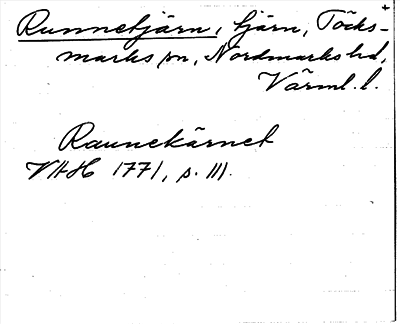 Runnetjärn, tjärn, Töcks-
marks sn, Nordmarks hd,
Värml. l.
Raunekärnet
VHH 1771, s. 111.